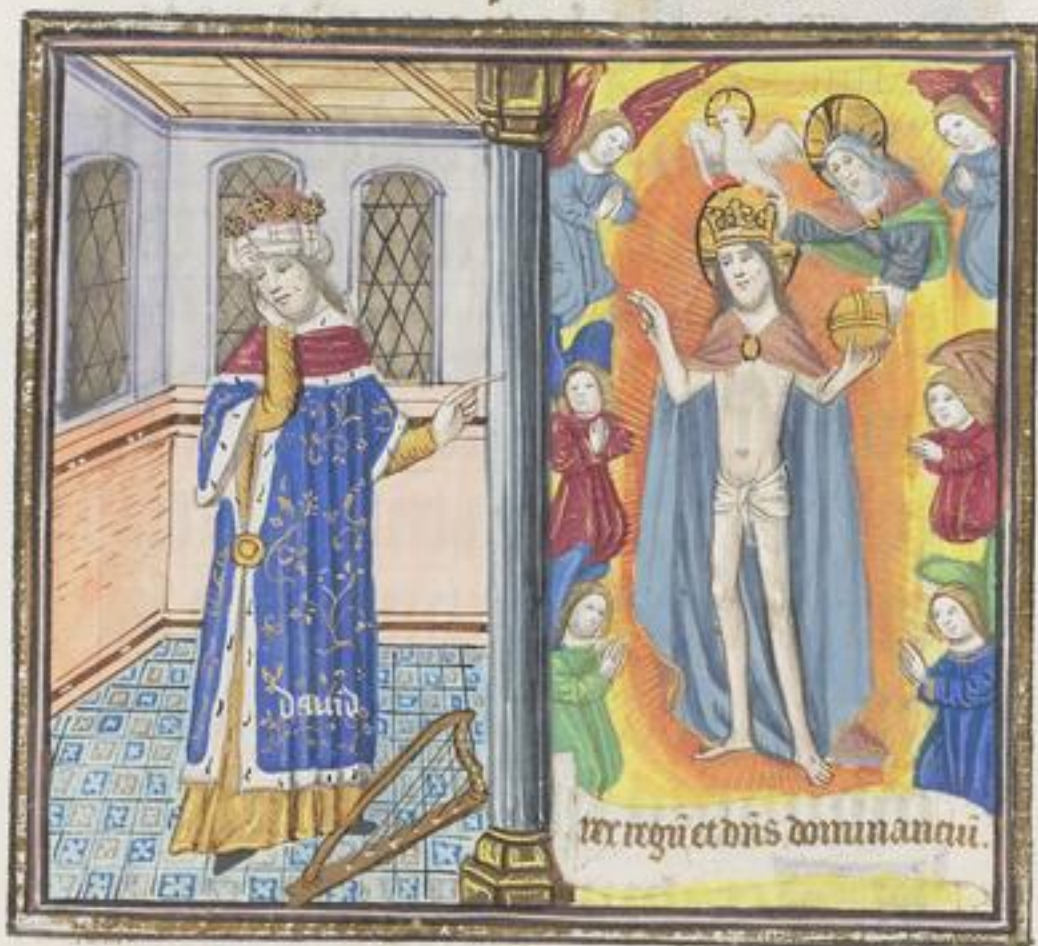 dauid
rex regū et dn̄s dominanciū.